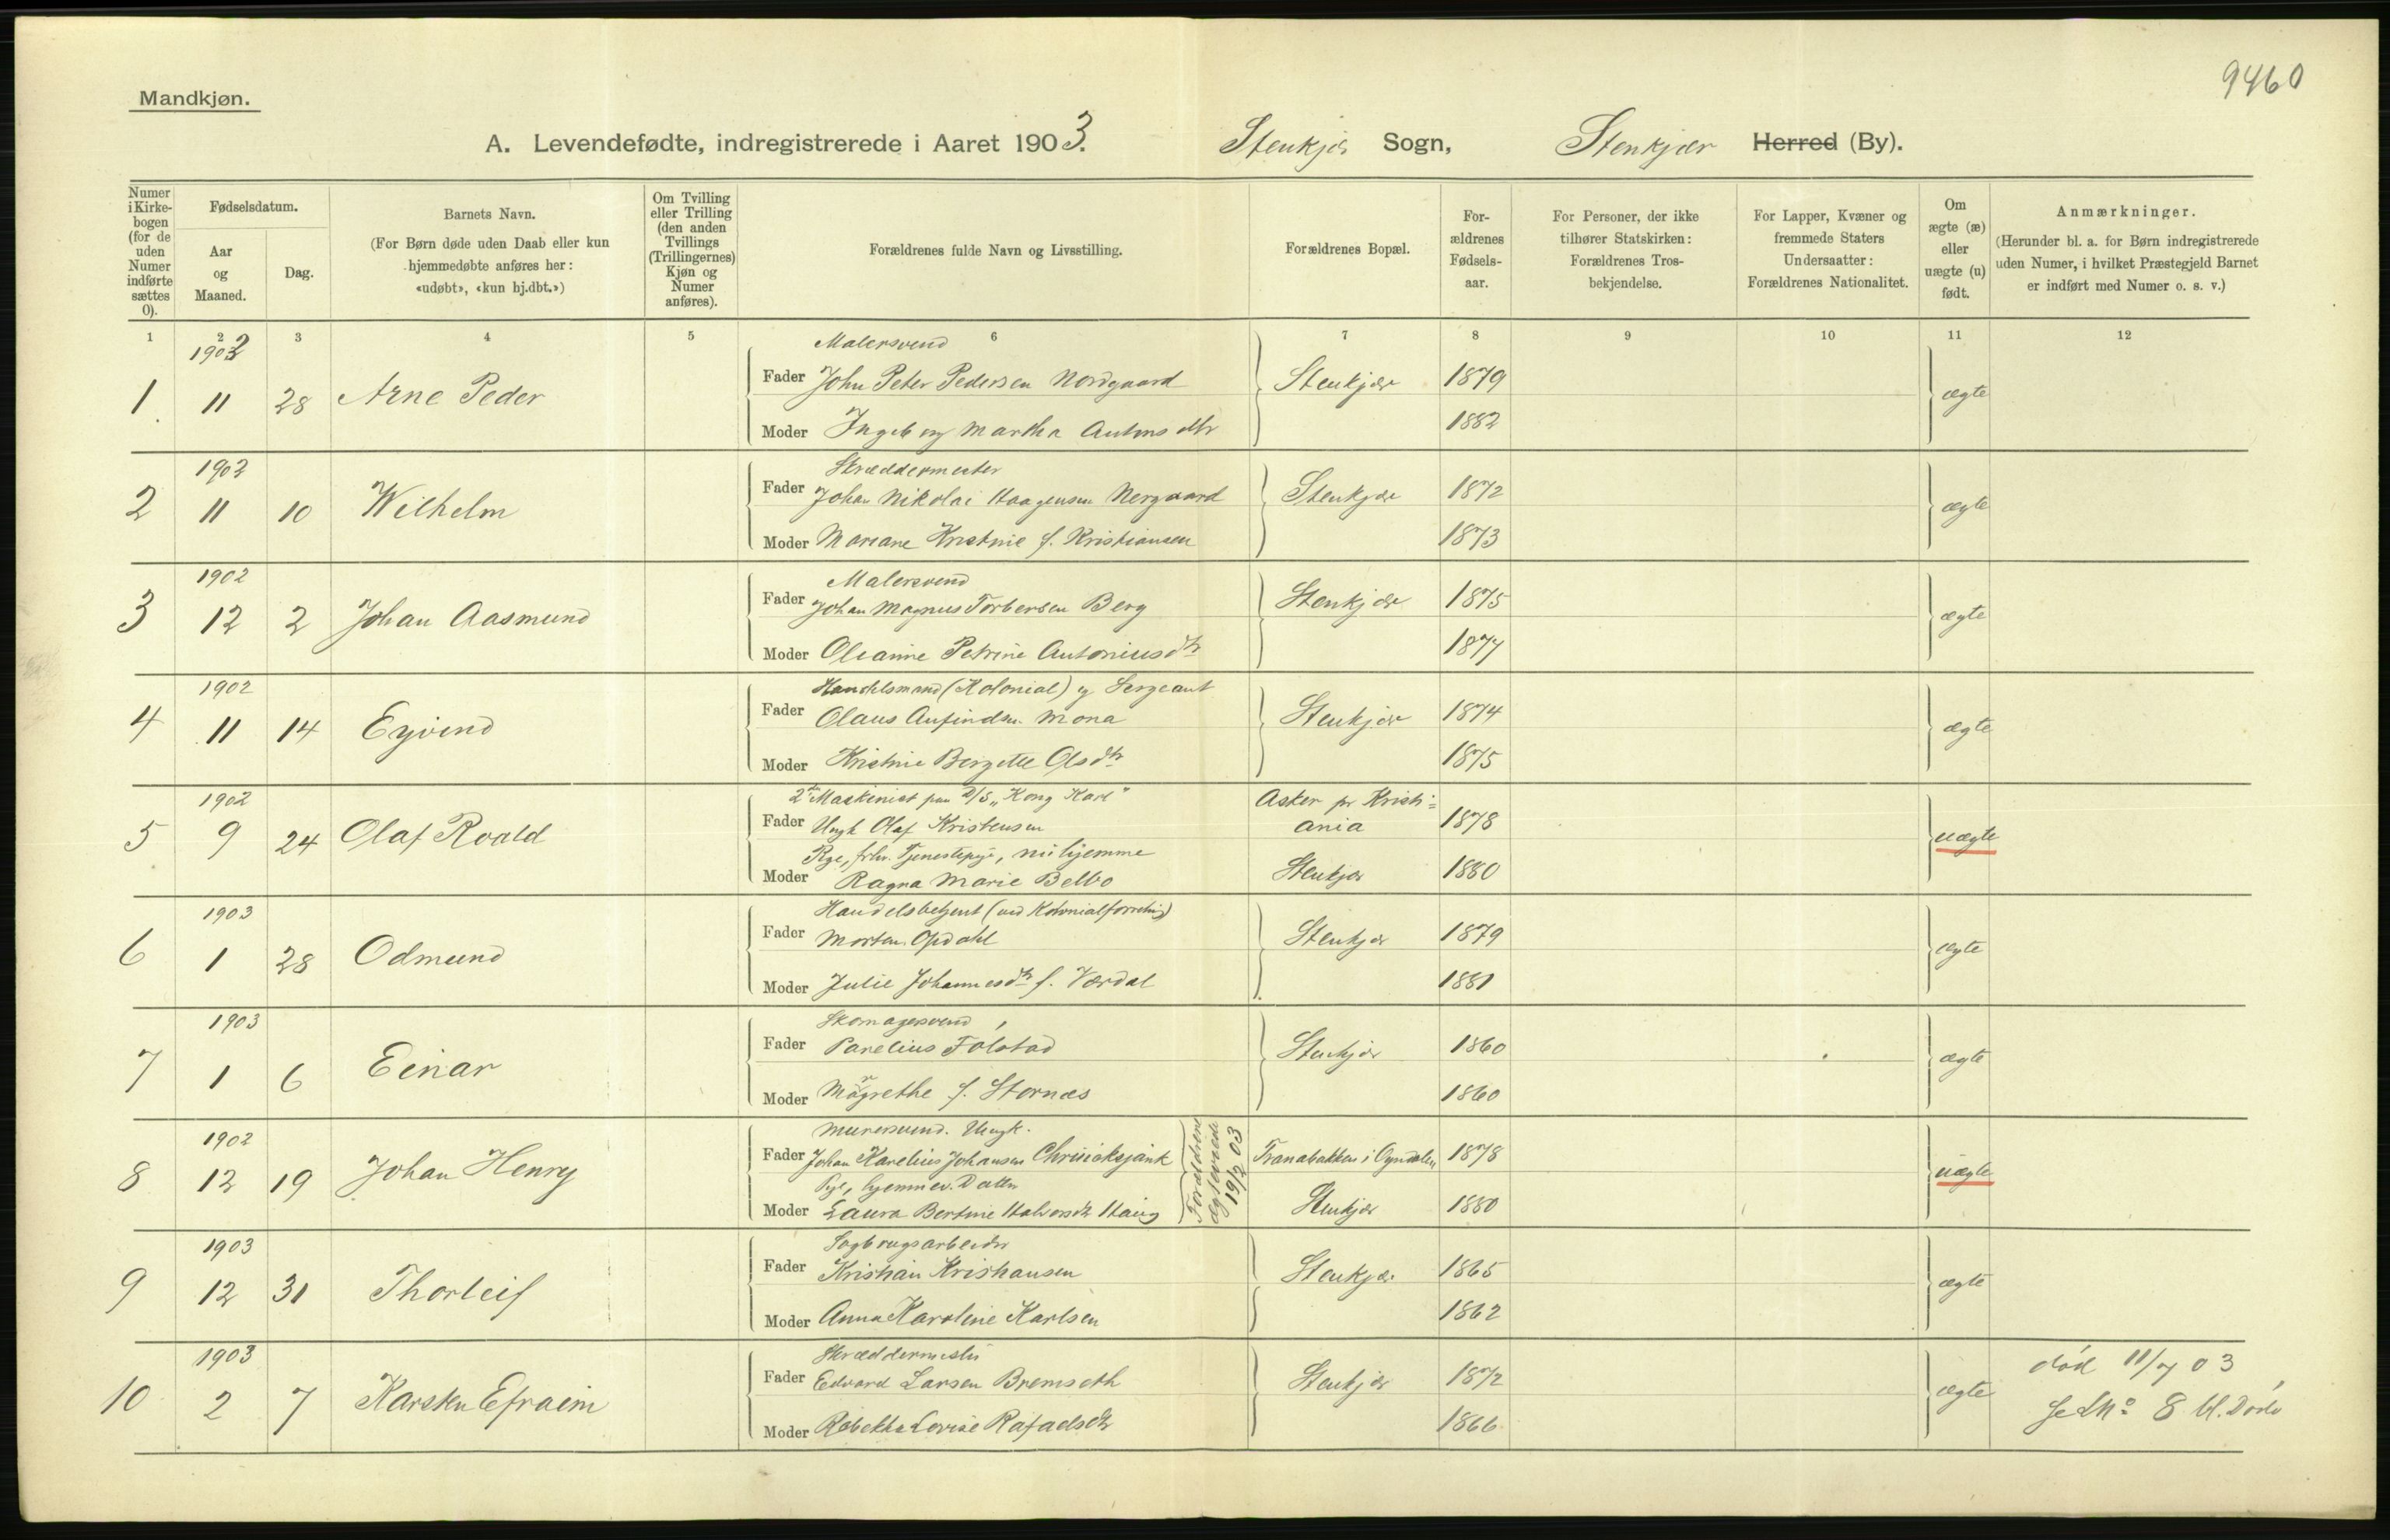 9460
Mandkjøn.
A. Levendefødte, indregistrerede i Aaret 1903. Stenkjær Sogn, Stenkjær Herred (By).
Numer i Kirkebogen (for de uden Numer indførte sættes 0).
Fødselsdatum.
Aar og Maaned.
Dag.
Barnets Navn.
(For Børn døde uden Daab eller kun hjemmedøbte anføres her: «udøbt», «kun hj.dbt.»)
Om Tvilling eller Trilling (den anden Tvillings (Trillingernes) Kjøn og Numer anføres).
Forældrenes fulde Navn og Livsstilling.
Forældrenes Bopæl.
Forældrenes Fødselsaar.
For Personer, der ikke tilhører Statskirken: Forældrenes Trosbekjendelse.
For Lapper, Kvæner og fremmede Staters Undersaatter: Forældrenes Nationalitet.
Om ægte (æ) eller uægte (u) født.
Anmærkninger.
(Herunder bl. a. for Børn indregistrerede uden Numer, i hvilket Præstegjeld Barnet er indført med Numer o. s. v.)
1 2 3 4 5 6 7 8 9 10 11 12
1902 Malersvend
1 11 28 Arne Peder Fader John Peter Pedersen Nordgaard Stenkjær 1879 ægte
Moder Ingeborg Martha Antonsdtr 1882
1902 Skræddermester
2 11 10 Wilhelm Fader Johan Nikolai Haagensen Nergaard Stenkjær 1872 ægte
Moder Mariane Kristine f. Kristiansen 1873
1902 Malersvend
3 12 2 Johan Aasmund Fader Johan Magnus Torbersen Berg Stenkjær 1875 ægte
Moder Oleanne Petrine Antoniusdtr 1877
1902 Handelsmand (Kolonial) og Sergeant
4 11 14 Eyvind Fader Olaus Anfindsen Mona Stenkjær 1874 ægte
Moder Kristine Bergette Olsdtr 1875
1902 2den Maskinist paa D/S „Kong Karl" Asker pr Kristi-
5 9 24 Olaf Roald Fader Ungk Olaf Kristensen ania 1878 uægte
Pige, frhv. Tjenestepige, nu hjemme
Moder Ragna Marie Belbo Stenkjær 1880
1903 Handelsbetjent (ved Kolonialforretning)
6 1 28 Odmund Fader Morten Opdahl Stenkjær 1879 ægte
Moder Julie Johannesdtr f. Værdal 1881
1903 Skomagersvend
7 1 6 Einar Fader Parelius Folstad Stenkjær 1860 ægte
Moder Margrethe f. Stornæs 1860
1902 Murersvend. Ungk.
8 12 19 Johan Henry Fader Johan Karelius Johansen Tranabakken i 1878 uægte
Pige, hjemmev. Datter
Moder Laura Bertine Halvorsdtr Haug Stenkjær 1880
Forældrene ægteviede 19/2 03
1903 Sagbrugsarbeider
9 12 31 Thorleif Fader Kristian Kristiansen Stenkjær 1865 ægte
Moder Anna Karoline Karlsen 1862
1903 Skræddermester
10 2 7 Karsten Efraim Fader Edvard Larsen Bremseth Stenkjær 1872 ægte død 11/7 03
Moder Rebekka Lovise Rafaelsdtr 1866 se No 8 bl. Døde